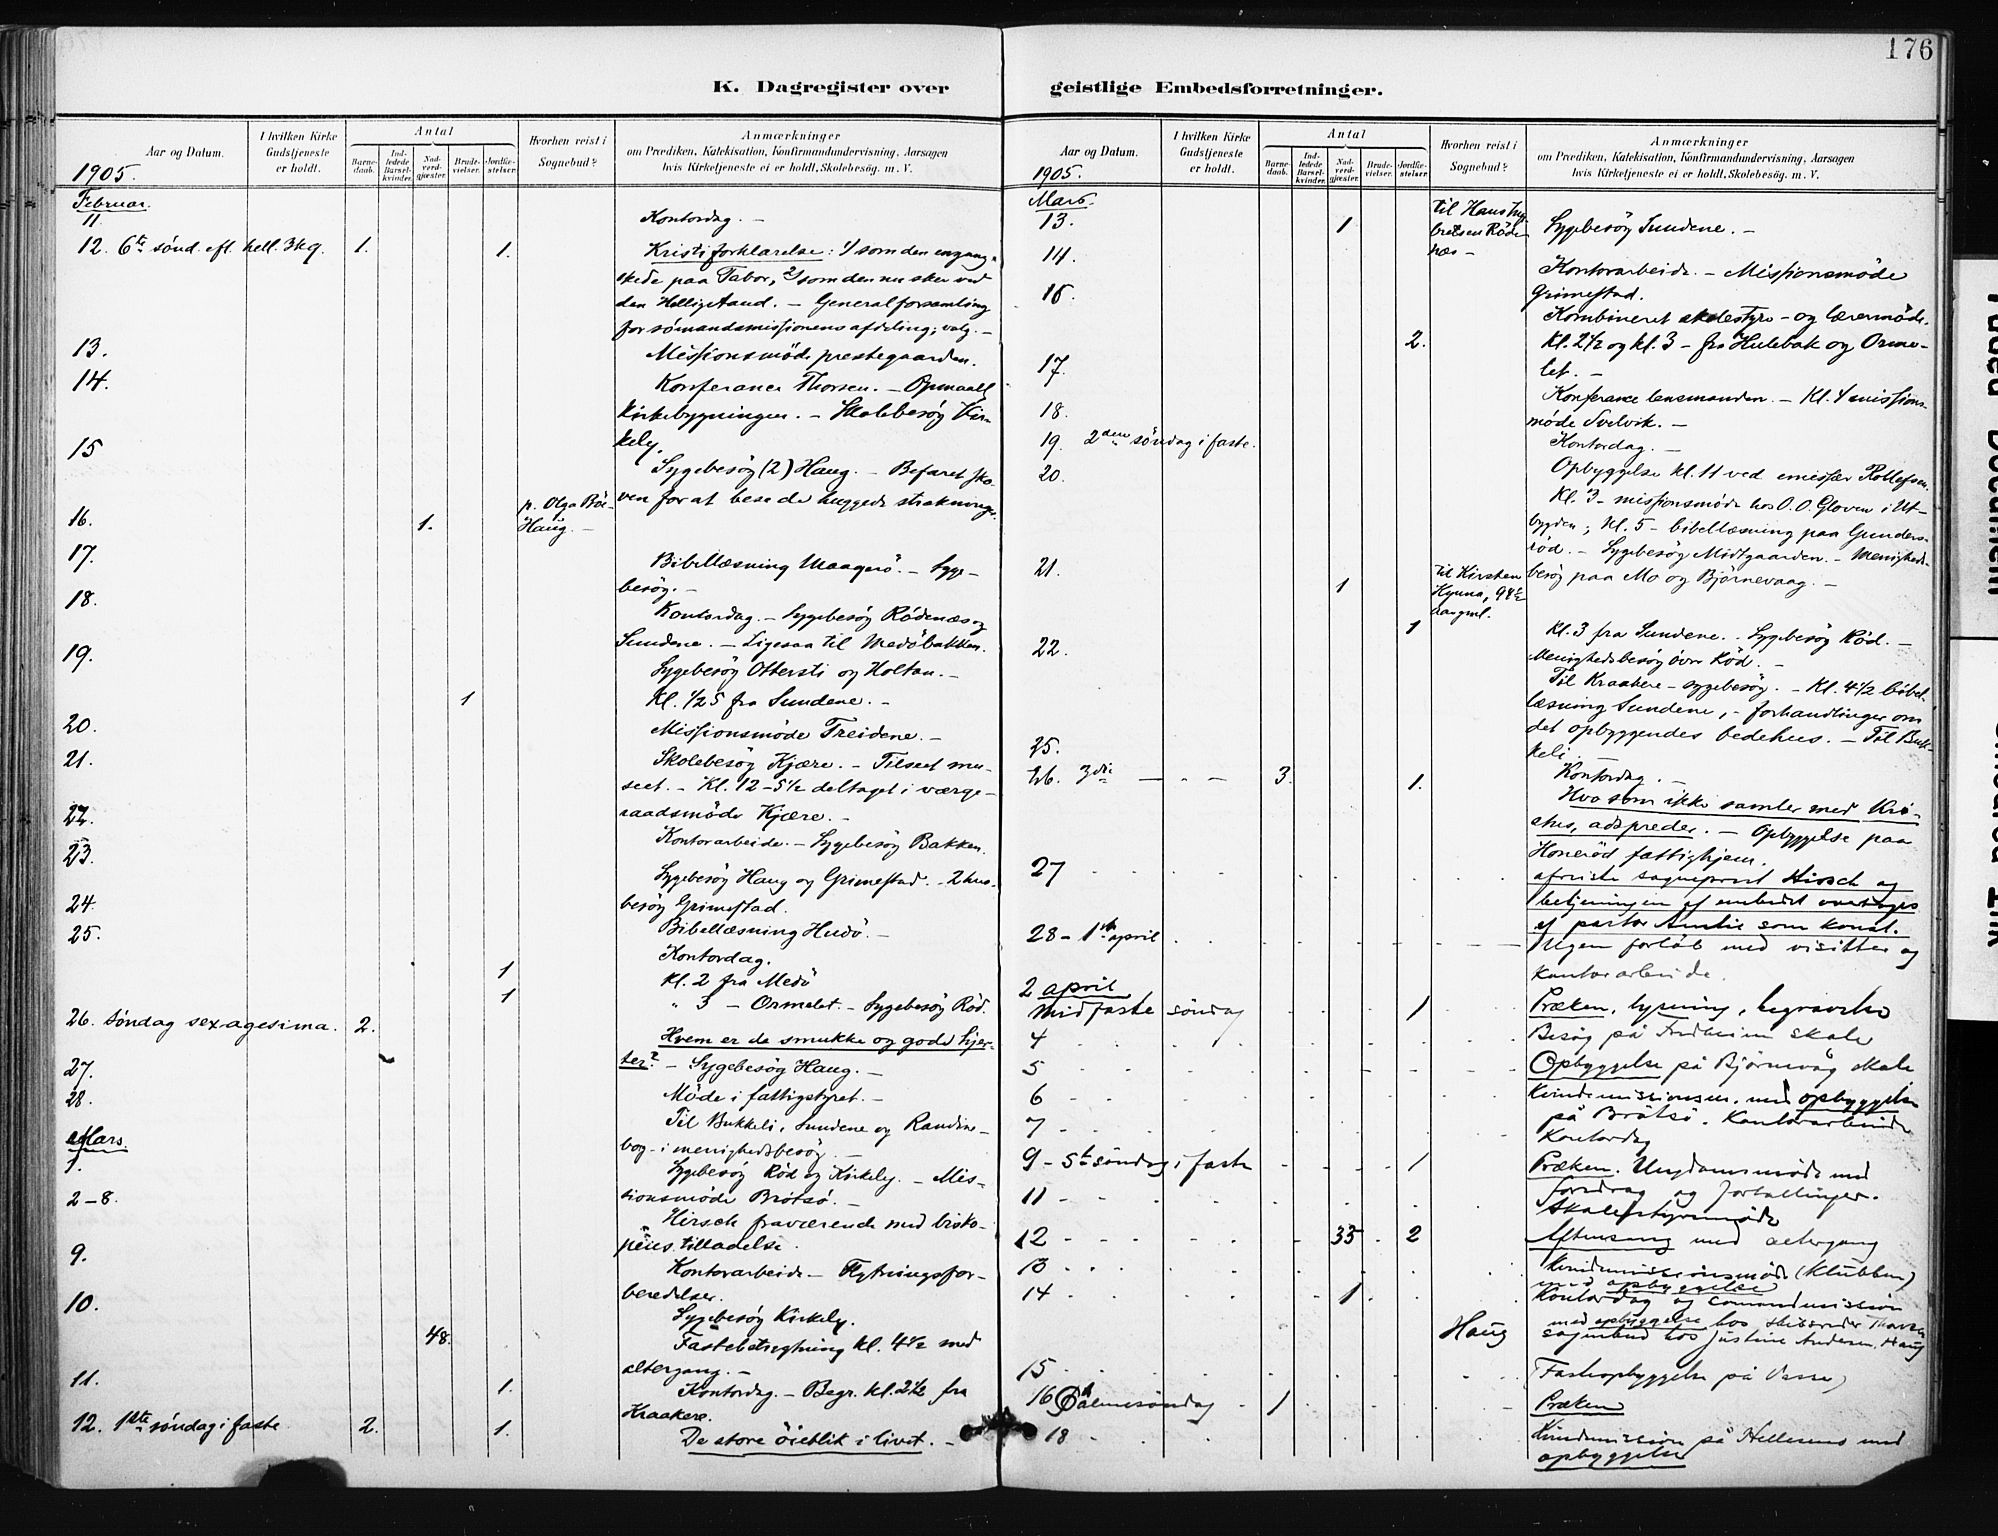 176
K. Dagregister over
Aar og Datum.
I hvilken Kirke Gudstjeneste er holdt.
Antal
Barnedaab.
Indledede Barselkvinder.
Nadverdgjæster.
Brudevielser.
Jordfæstelser.
Hvorhen reist i Sognebud?
Anmærkninger
om Prædiken, Katekisation, Konfirmandundervisning, Aarsagen
hvis Kirketjeneste ei er holdt, Skolebesög. m. V.
1905.
Februar.
11. Kontordag. —
12. 6te sönd. eft. hell. 3kg. 1. 1. Kristi forklarelse: 1/ som den engang
skede paa Tabor, 2/ som den nu sker ved
den Helligaand. — Generalforsamling
for sömandsmissionens afdeling; valg. —
13. Missionsmöde prestegaarden.
14. Konferance Thorsen. — Opmaalt
kirkebygningen. — Skolebesög Kir-
kely.
15 Sygebesög (2) Haug. — Befaret sko-
ven for at bese de huggede strækninger.
16. 1. p. Olga Böe
Haug. —
17. Bibellæsning Maagerö. — Syge-
besög. —
18. Kontordag. — Sygebesög Rödenæs og
Sundene. — Ligesaa til Medöbakken.
19. Sygebesög Ottersti og Holtan. —
1 Kl. 1/2 5 fra Sundene. —
20. Missionsmöde Treidene. —
21. Skolebesög Kjære. — Tilseet mu-
seet. — Kl. 12 - 5 1/2 deltaget i værge-
raadsmöde Kjære. —
22. Kontorarbeide. — Sygebesög Bakken.
23. Sygebesög Haug og Grimestad. — 2 hus-
besög Grimestad.
24. Bibellæsning Hudö. —
25. Kontordag.
1 Kl. 2 fra Medö
1 " 3 — Ormelet. — Sygebesög Röd.
26. Söndag sexagesima. 2. Hvem er de smukke og gode hjer-
ter? — Sygebesög Haug. —
27. Möde i fattigstyret. —
28. Til Bukkeli, Sundene og Randine-
bog - i menighedsbesög. —
Mars.
1. Sygebesög Röd og Kirkely. — Mis-
sionsmöde Brötsö. —
2-8. Hirsch fraværende med bisko-
pens tilladelse.
9. Kontorarbeide — Flytningsfor-
beredelser.
10. Sygebesög Kirkely.
48. Fastebetragtning kl. 4 1/2 med
altergang. —
11. 1. Kontordag. — Begr. kl. 2 1/2 fra
Kraakere.
12. 1ste söndag i faste 2. 1. De store öieblik i livet. —
geistlige Embedsforretninger.
Aar og Datum.
I hvilken Kirke Gudstjeneste er holdt.
Antal
Barnedaab.
Indledede Barselkvinder.
Nadverdgjæster.
Brudevielser.
Jordfæstelser.
Hvorhen reist i Sognebud?
Anmærkninger
om Prædiken, Katekisation, Konfirmandundervisning, Aarsagen
hvis Kirketjeneste ei er holdt, Skolebesög. m. V.
1905.
Mars.
13. 1 til Hans Ing-
bretsen Röde-
næs — Sygebesög Sundene. —
14. Kontorarbeide. — Missionsmöde
Grimestad.
16. Kombineret skolestyre- og lærermöde.
2. Kl. 2 1/2 og kl. 3 - fra Hulebak og Orme-
let. —
17. Konferance lensmanden. — Kl. 4 missions-
möde Svelvik. —
18. Kontordag. —
19. 2den söndag i faste. Opbyggelse kl. 11 ved emissær Rollefsen.
20. Kl. 3 - missionsmöde hos O. O. Gloven i Ut-
bygden; kl. 5 - bibellæsning paa Gunders-
röd. — Sygebesög Midtgaarden. — Menigheds-
besög paa Mo og Björnevaag. —
21. 1 til Kirsten
Hynne, 94 1/2
aar gml.
1 Kl. 3 fra Sundene. — Sygebesög Röd. —
22. Menighedsbesög övre Röd. —
Til Kraakere - sygebesög. — Kl. 4 1/2 bibel-
læsning Sundene, - forhandlinger om
det opbyggendes bedehus. — Til Buk-
keli. —
25. Kontordag. —
26. 3die — " — 3. 1. Hvo som ikke samler med Kri-
stus, adspreder. — Opbyggelse paa
Honeröd fattighjem.
27 afreiste sogneprest Hirsch og
betjeningen af embedet overtages
af pastor Amlie som konst.
28 - 1ste april Ugen forlöb med visitter og
kontorarbeide.
2 april
Midfaste söndag 1 Præken, lysning, begravelse
4 Besög på Fredheim skole
5 Opbyggelse på Björnevåg skole
6 Kvindemissionen. med opbyggelse
på Brötsö. Kontorarbeide
7 Kontordag
9 - 5te söndag i faste 1 Præken. Ungdomsmöde med
foredrag og fortællinger.
11 Skolestyremöde
12 35 2 Aftensang med altergang
13 Kvindemissionsmöde (Klubben)
med opbyggelse
14 1 Kontordag og sömandsmission
med opbyggelse hos
Haug sognebud hos Justine Andersen, Haug
15 (Fasteopbyggelse på Vasser)
16 Palmesöndag 1 Præken
18 Kvindemission på Hellesmo med
opbyggelse